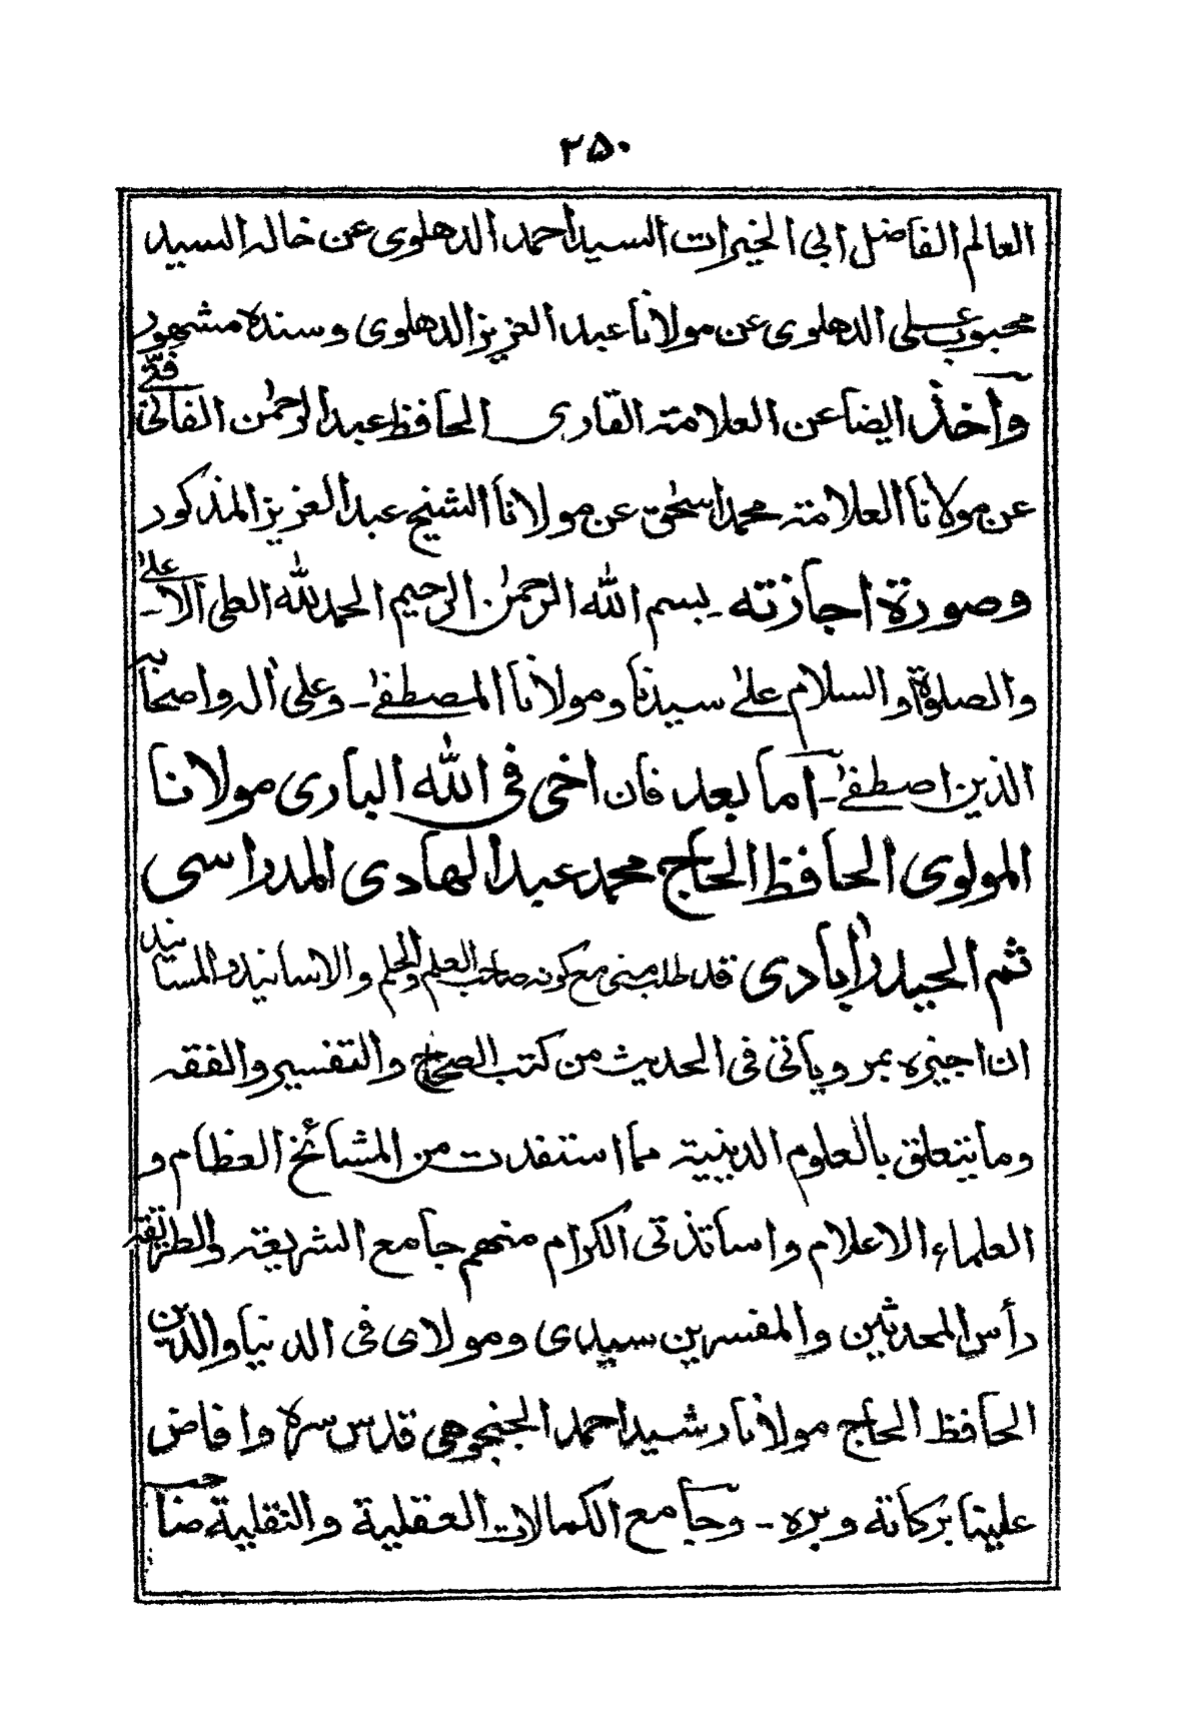 ۲۵۰
العالم الفاضل ابی الخیرات السید احمد الدهلوی عن خاله السید
محبوب علی الدهلوی عن مولانا عبد العزیز الدهلوی وسنده مشهور
وآخذ ایضا عن العلامة القاری الحافظ عبد الرحمٰن الفانی فتی
عن مولانا العلامة محمد اسحٰق عن مولانا الشیخ عبد العزیز المذکور
وصورة اجازته ـ بسم الله الرحمٰن الرحیم الحمد لله العلی الاعلیٰ ـ
والصلوٰة والسلام علیٰ سیدنا ومولانا المصطفیٰ ـ وعلیٰ اٰله واصحابه
الذین اصطفیٰ ـ اما بعد فان اخی فی الله الباری مولانا
المولوی الحافظ الحاج محمد عبد الهادی المدراسی
ثم الحیدراٰبادی قد طلب منی مع کونه صاحب العلم والحلم والاسانید والمسانید
ان اجیزه بمرویاتی فی الحدیث من کتب الصحاح والتفسیر والفقه
وما یتعلق بالعلوم الدینیة مما استنفدت من المشائخ العظام و
العلماء الاعلام واساتذتی الکرام منهم جامع الشریعة والطریقة
رأس المحدثین والمفسرین سیدی ومولای فی الدنیا والدین
الحافظ الحاج مولانا رشید احمد الجنجوهی قدس سره وافاض
علینا برکاته وبره ـ وجامع الکمالات العقلیة والنقلیة صاحب